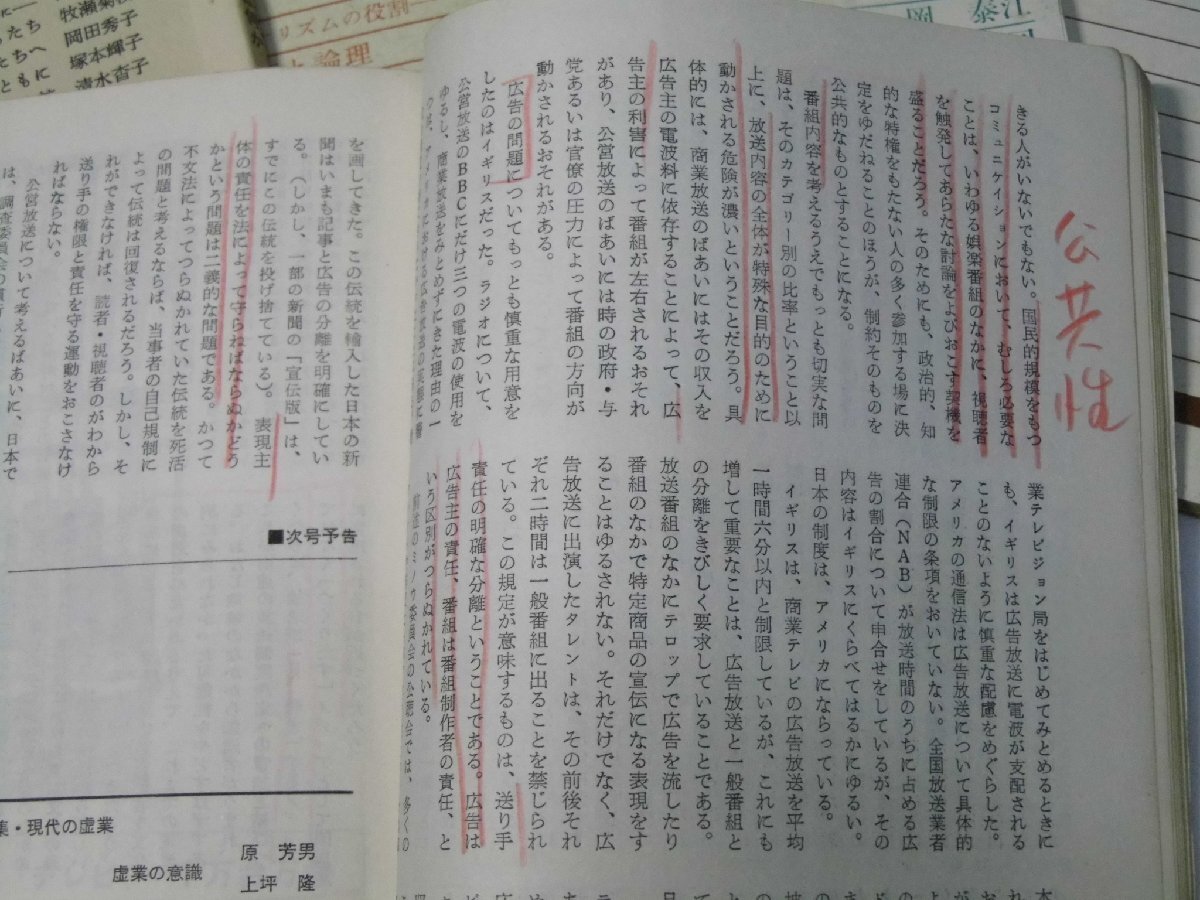 牧瀬菊
岡田秀子
塚本輝子
清水杳子
たちへ
ともに
リズムの役割
と論理
泰江
公共性
きる人がいないでもない。国民的規模をもつ
コミュニケイションにおいて、むしろ必要な
ことは、いわゆる娯楽番組のなかに、視聴者
を触発してあらたな討論をよびおこす契機を
盛ることだろう。そのためにも、政治的、知
的な特権をもたない人の多く参加する場に決
定をゆだねることのほうが、制約そのものを
公共的なものとすることになる。
番組内容を考えるうえでもっとも切実な問
題は、そのカテゴリー別の比率ということ以
上に、放送内容の全体が特殊な目的のために
動かされる危険が濃いということだろう。具
体的には、商業放送のばあいにはその収入を
広告主の電波料に依存することによって、広
告主の利害によって番組が左右されるおそれ
があり、公営放送のばあいには時の政府・与
党あるいは官僚の圧力によって番組の方向が
動かされるおそれがある。
広告の問題についてもっとも慎重な用意を
したのはイギリスだった。ラジオについて、
公営放送のBBCにだけ三つの電波の使用を
ゆるし、商業放送をみとめずにきた理由の一
業テレビジョン局をはじめてみとめるときに
も、イギリスは広告放送に電波が支配される
ことのないように慎重な配慮をめぐらした。
アメリカの通信法は広告放送について具体的
な制限の条項をおいていない。全国放送業者
連合(NAB)が放送時間のうちに占める広
告の割合について申合せをしているが、その
内容はイギリスにくらべてはるかにゆるい。
日本の制度は、アメリカにならっている。
イギリスは、商業テレビの広告放送を平均
一時間六分以内と制限しているが、これにも
増して重要なことは、広告放送と一般番組と
の分離をきびしく要求していることである。
放送番組のなかにテロップで広告を流したり
番組のなかで特定商品の宣伝になる表現をす
ることはゆるされない。それだけでなく、広
告放送に出演したタレントは、その前後それ
ぞれ二時間は一般番組に出ることを禁じられ
ている。この規定が意味するものは、送り手
責任の明確な分離ということである。広告は
広告主の責任、番組は番組制作者の責任、と
いう区別がつらぬかれている。
を画してきた。この伝統を輸入した日本の新
聞はいまも記事と広告の分離を明確にしてい
る。(しかし、一部の新聞の「宣伝版」は、
すでにこの伝統を投げ捨てている)。表現主
体の責任を法によって守らねばならぬかどう
かという問題は二義的な問題である。かつて
不文法によってつらぬかれていた伝統を死活
の問題と考えるならば、当事者の自己規制に
よって伝統は回復されるだろう。しかし、そ
れができなければ、読者・視聴者のがわから
送り手の権限と責任を守る運動をおこさなけ
ればならない。
公営放送について考えるばあいに、日本で
■次号予告
集・現代の虚業
虚業の意識
原 芳男
上坪 隆